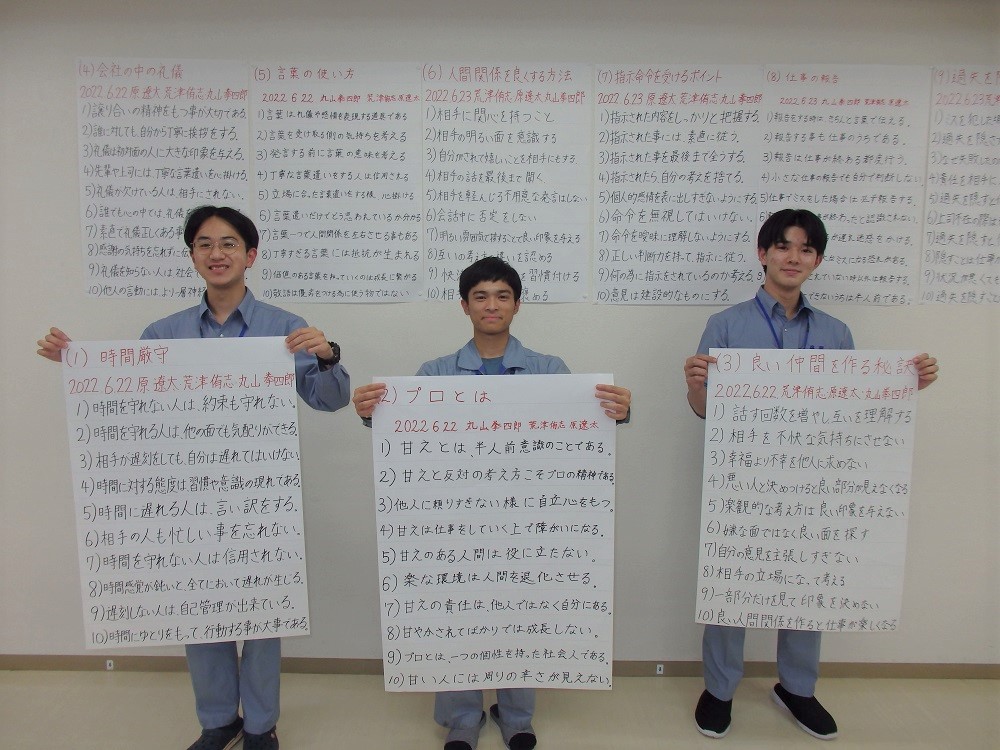 (4) 会社の中の礼儀
2022 6.22 原遼太 荒津侑志 丸山孝四郎
1) 譲り合いの精神をもつ事が大切である。
2) 誰に対しても、自分から丁寧に挨拶をする。
3) 礼儀は初対面の人に大きな印象を与える。
4) 先輩や上司には、丁寧な言葉遣いを心掛ける。
5) 礼儀が欠けている人は、相手にされない。
6) 誰でも心の中では、礼儀を
7) 素直で礼儀正しくある事
8) 感謝の気持ちを忘れずに
9) 礼儀を知らない人は 社会
10) 他人の言動には より一層神経
(5) 言葉の使い方
2022 6 22 丸山孝四郎 荒津侑志 原遼太
1) 言葉は、礼儀や感情を表現する道具である
2) 言葉を受け取る側の気持ちを考える
3) 発言する前に言葉の意味を考える
4) 丁寧な言葉遣いをする人は信用される
5) 立場に合った言葉遣いをする様、心掛ける
6) 言葉遣いだけでどう思われているか分かる
7) 言葉一つで人間関係を左右させる事もある
8) 丁寧すぎる言葉には抵抗が生まれる
10) 敬語は優劣をつける為に使う物ではない
(6) 人間関係を良くする方法
2022 6.23 荒津侑志 原遼太 丸山孝四郎
1) 相手に関心を持つこと
2) 相手の明るい面を意識する
3) 自分がされて嬉しいことを相手にもする
4) 相手の話を最後まで聞く
5) 相手を軽んじる不用意な発言はしない
6) 会話中に否定をしない
7) 明るい雰囲気で接することで良い印象を与える
8) 互いの考え方の違いを認める
9) 快
を習慣付ける
10) 相手
褒める
(7) 指示命令を受けるポイント
2022 6.23 原遼太 荒津侑志 丸山孝四郎
1) 指示された内容をしっかりと把握する
2) 指示された仕事には 素直に従う。
3) 指示された事を最後まで全うする。
4) 指示されたら、自分の考えを捨てる。
5) 個人的感情を表に出しすぎないようにする
6) 命令を無視してはいけない。
7) 命令を曖昧に理解しないようにする。
8) 正しい判断力を持って、指示に従う。
9) 何の為に指示をされているのか考える。
10) 意見は建設的なものにする。
(8) 仕事の報告
2022 6.23 丸山孝四郎 荒津侑志 原遼太
1) 報告をする時は きちんと言葉で伝える。
2) 報告する事も仕事のうちである。
3) 報告は仕事が終わる都度行う。
4) 小さな仕事の報告でも自分で判断しない
5) 仕事でミスをした場合は 必ず報告する
(9) 過失を
2022 6.23 荒
1) ミスを犯した
(1) 時間厳守
2022 6.22 原遼太 荒津侑志 丸山孝四郎
1) 時間を守れない人は、約束も守れない。
2) 時間を守れる人は、他の面でも気配りができる。
3) 相手が遅刻をしても、自分は遅れてはいけない。
4) 時間に対する態度は習慣や意識の現れである。
5) 時間に遅れる人は、言い訳をする。
6) 相手の人も忙しい事を忘れない。
7) 時間を守れない人は信用されない。
8) 時間感覚が鈍いと、全てにおいて遅れが生じる。
9) 遅刻しない人は、自己管理が出来ている。
10) 時間にゆとりをもって、行動する事が大事である。
2) プロとは
2022 6 22 丸山孝四郎 荒津侑志 原遼太
1) 甘えとは、半人前意識のことである。
2) 甘えと反対の考え方こそプロの精神である。
3) 他人に頼りすぎない様に自立心をもつ。
4) 甘えは仕事をしていく上で障がいになる。
5) 甘えのある人間は役に立たない。
6) 楽な環境は人間を退化させる。
7) 甘えの責任は、他人ではなく自分にある。
8) 甘やかされてばかりでは成長しない。
9) プロとは、一つの個性を持った社会人である。
10) 甘い人には周りの辛さが見えない。
(3) 良い仲間を作る秘訣
2022.6.22. 荒津侑志・原遼太・丸山孝四郎
1) 話す回数を増やし互いを理解する
2) 相手を不快な気持ちにさせない
3) 幸福より不幸を他人に求めない
4) 悪い人と決めつけると良い部分が見えなくなる
5) 楽観的な考え方は良い印象を与えない
6) 嫌な面ではなく良い面を探す
7) 自分の意見を主張しすぎない
8) 相手の立場になって考える
9) 一部分だけを見て印象を決めない
10) 良い人間関係を作ると仕事が楽しくなる